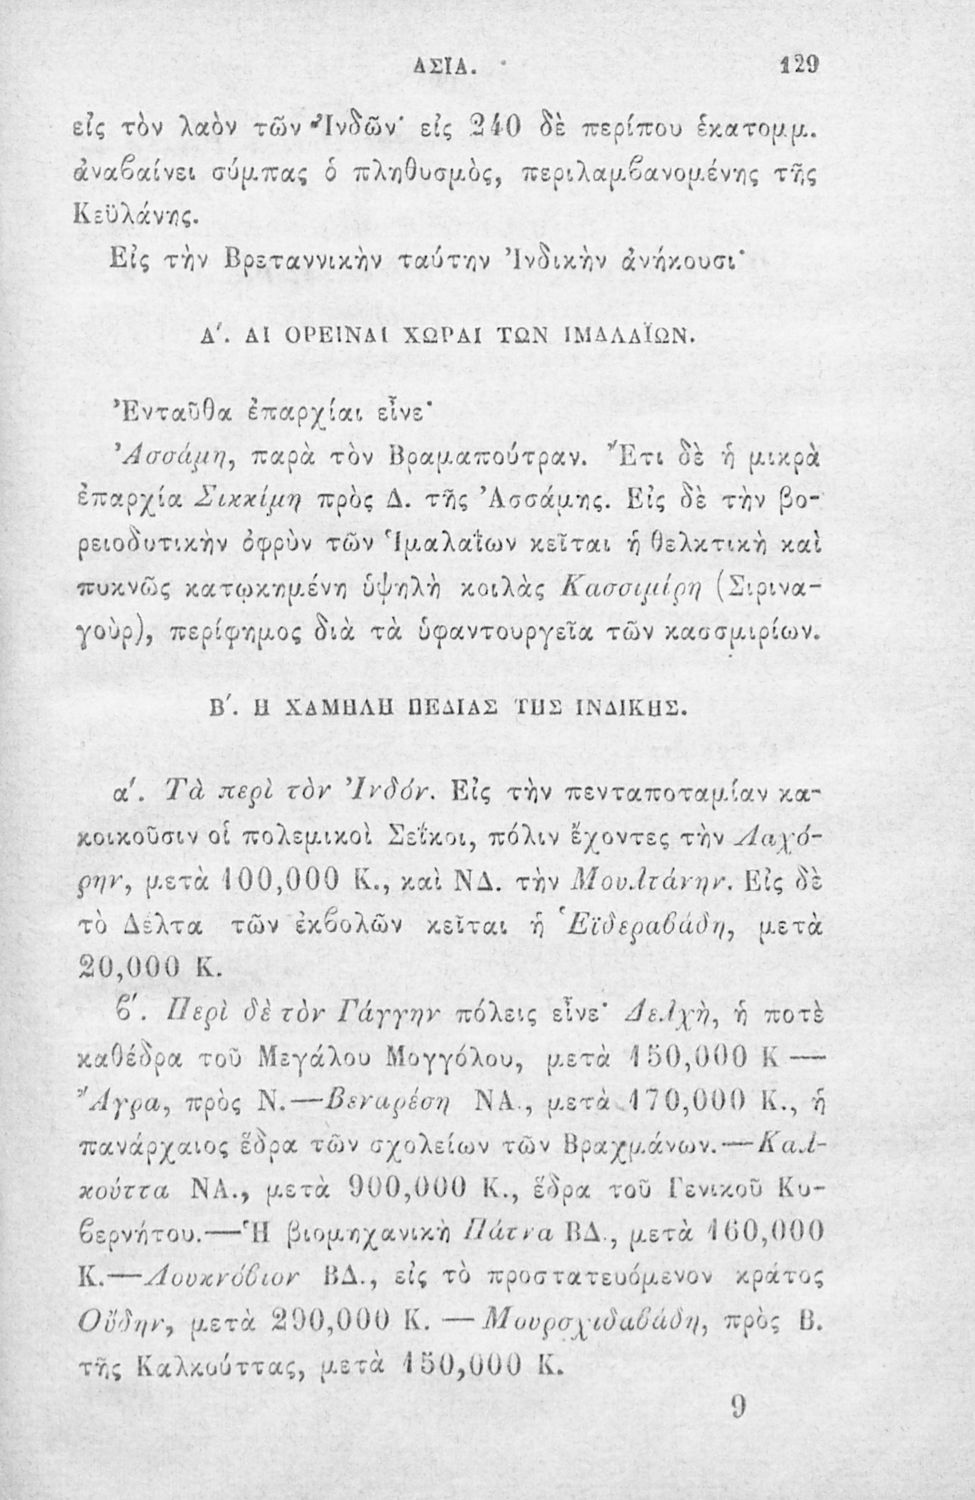 ΑΣΙΑ. 129
εἰς τὸν λαὸν τῶν Ἰνδῶν· εἰς 240 δὲ περίπου ἑκατομμ.
ἀναβαίνει σύμπας ὁ πληθυσμὸς, περιλαμβανομένης τῆς
Κεϋλάνης.
Εἰς τὴν Βρεταννικὴν ταύτην Ἰνδικὴν ἀνήκουσι·
Α΄. ΑΙ ΟΡΕΙΝΑΙ ΧΩΡΑΙ ΤΩΝ ΙΜΑΛΑΪΩΝ.
Ἐνταῦθα ἐπαρχίαι εἶνε·
Ἀσσάμη, παρὰ τὸν Βραμαπούτραν. Ἔτι δὲ ἡ μικρὰ
ἐπαρχία Σικκίμη πρὸς Δ. τῆς Ἀσσάμης. Εἰς δὲ τὴν βο-
ρειοδυτικὴν ὀφρὺν τῶν Ἱμαλαΐων κεῖται ἡ θελκτικὴ καὶ
πυκνῶς κατῳκημένη ὑψηλὴ κοιλὰς Κασσιμίρη (Σιρινα-
γοὺρ), περίφημος διὰ τὰ ὑφαντουργεῖα τῶν κασσμιρίων.
Β΄. Η ΧΑΜΗΛΗ ΠΕΔΙΑΣ ΤΗΣ ΙΝΔΙΚΗΣ.
α΄. Τὰ περὶ τὸν Ἰνδόν. Εἰς τὴν πενταποταμίαν κα-
κοικοῦσιν οἱ πολεμικοὶ Σεΐκοι, πόλιν ἔχοντες τὴν Λαχό-
ρην, μετὰ 100,000 Κ., καὶ ΝΔ. τὴν Μουλτάνην. Εἰς δὲ
τὸ Δέλτα τῶν ἐκβολῶν κεῖται ἡ Ἑϊδεραβάδη, μετὰ
20,000 Κ.
β΄. Περὶ δὲ τὸν Γάγγην πόλεις εἶνε· Δελχὴ, ἡ ποτὲ
καθέδρα τοῦ Μεγάλου Μογγόλου, μετὰ 150,000 Κ —
Ἄγρα, πρὸς Ν.—Βεναρέση ΝΑ., μετὰ 170,000 Κ., ἡ
πανάρχαιος ἕδρα τῶν σχολείων τῶν Βραχμάνων.—Καλ-
κούττα ΝΑ., μετὰ 900,000 Κ., ἕδρα τοῦ Γενικοῦ Κυ-
βερνήτου.—Ἡ βιομηχανικὴ Πάτνα ΒΔ., μετὰ 160,000
Κ.—Λουκνόβιον ΒΔ., εἰς τὸ προστατευόμενον κράτος
Οὔδην, μετὰ 290,000 Κ. — Μουρσχιδαβάδη, πρὸς Β.
τῆς Καλκούττας, μετὰ 150,000 Κ.
9